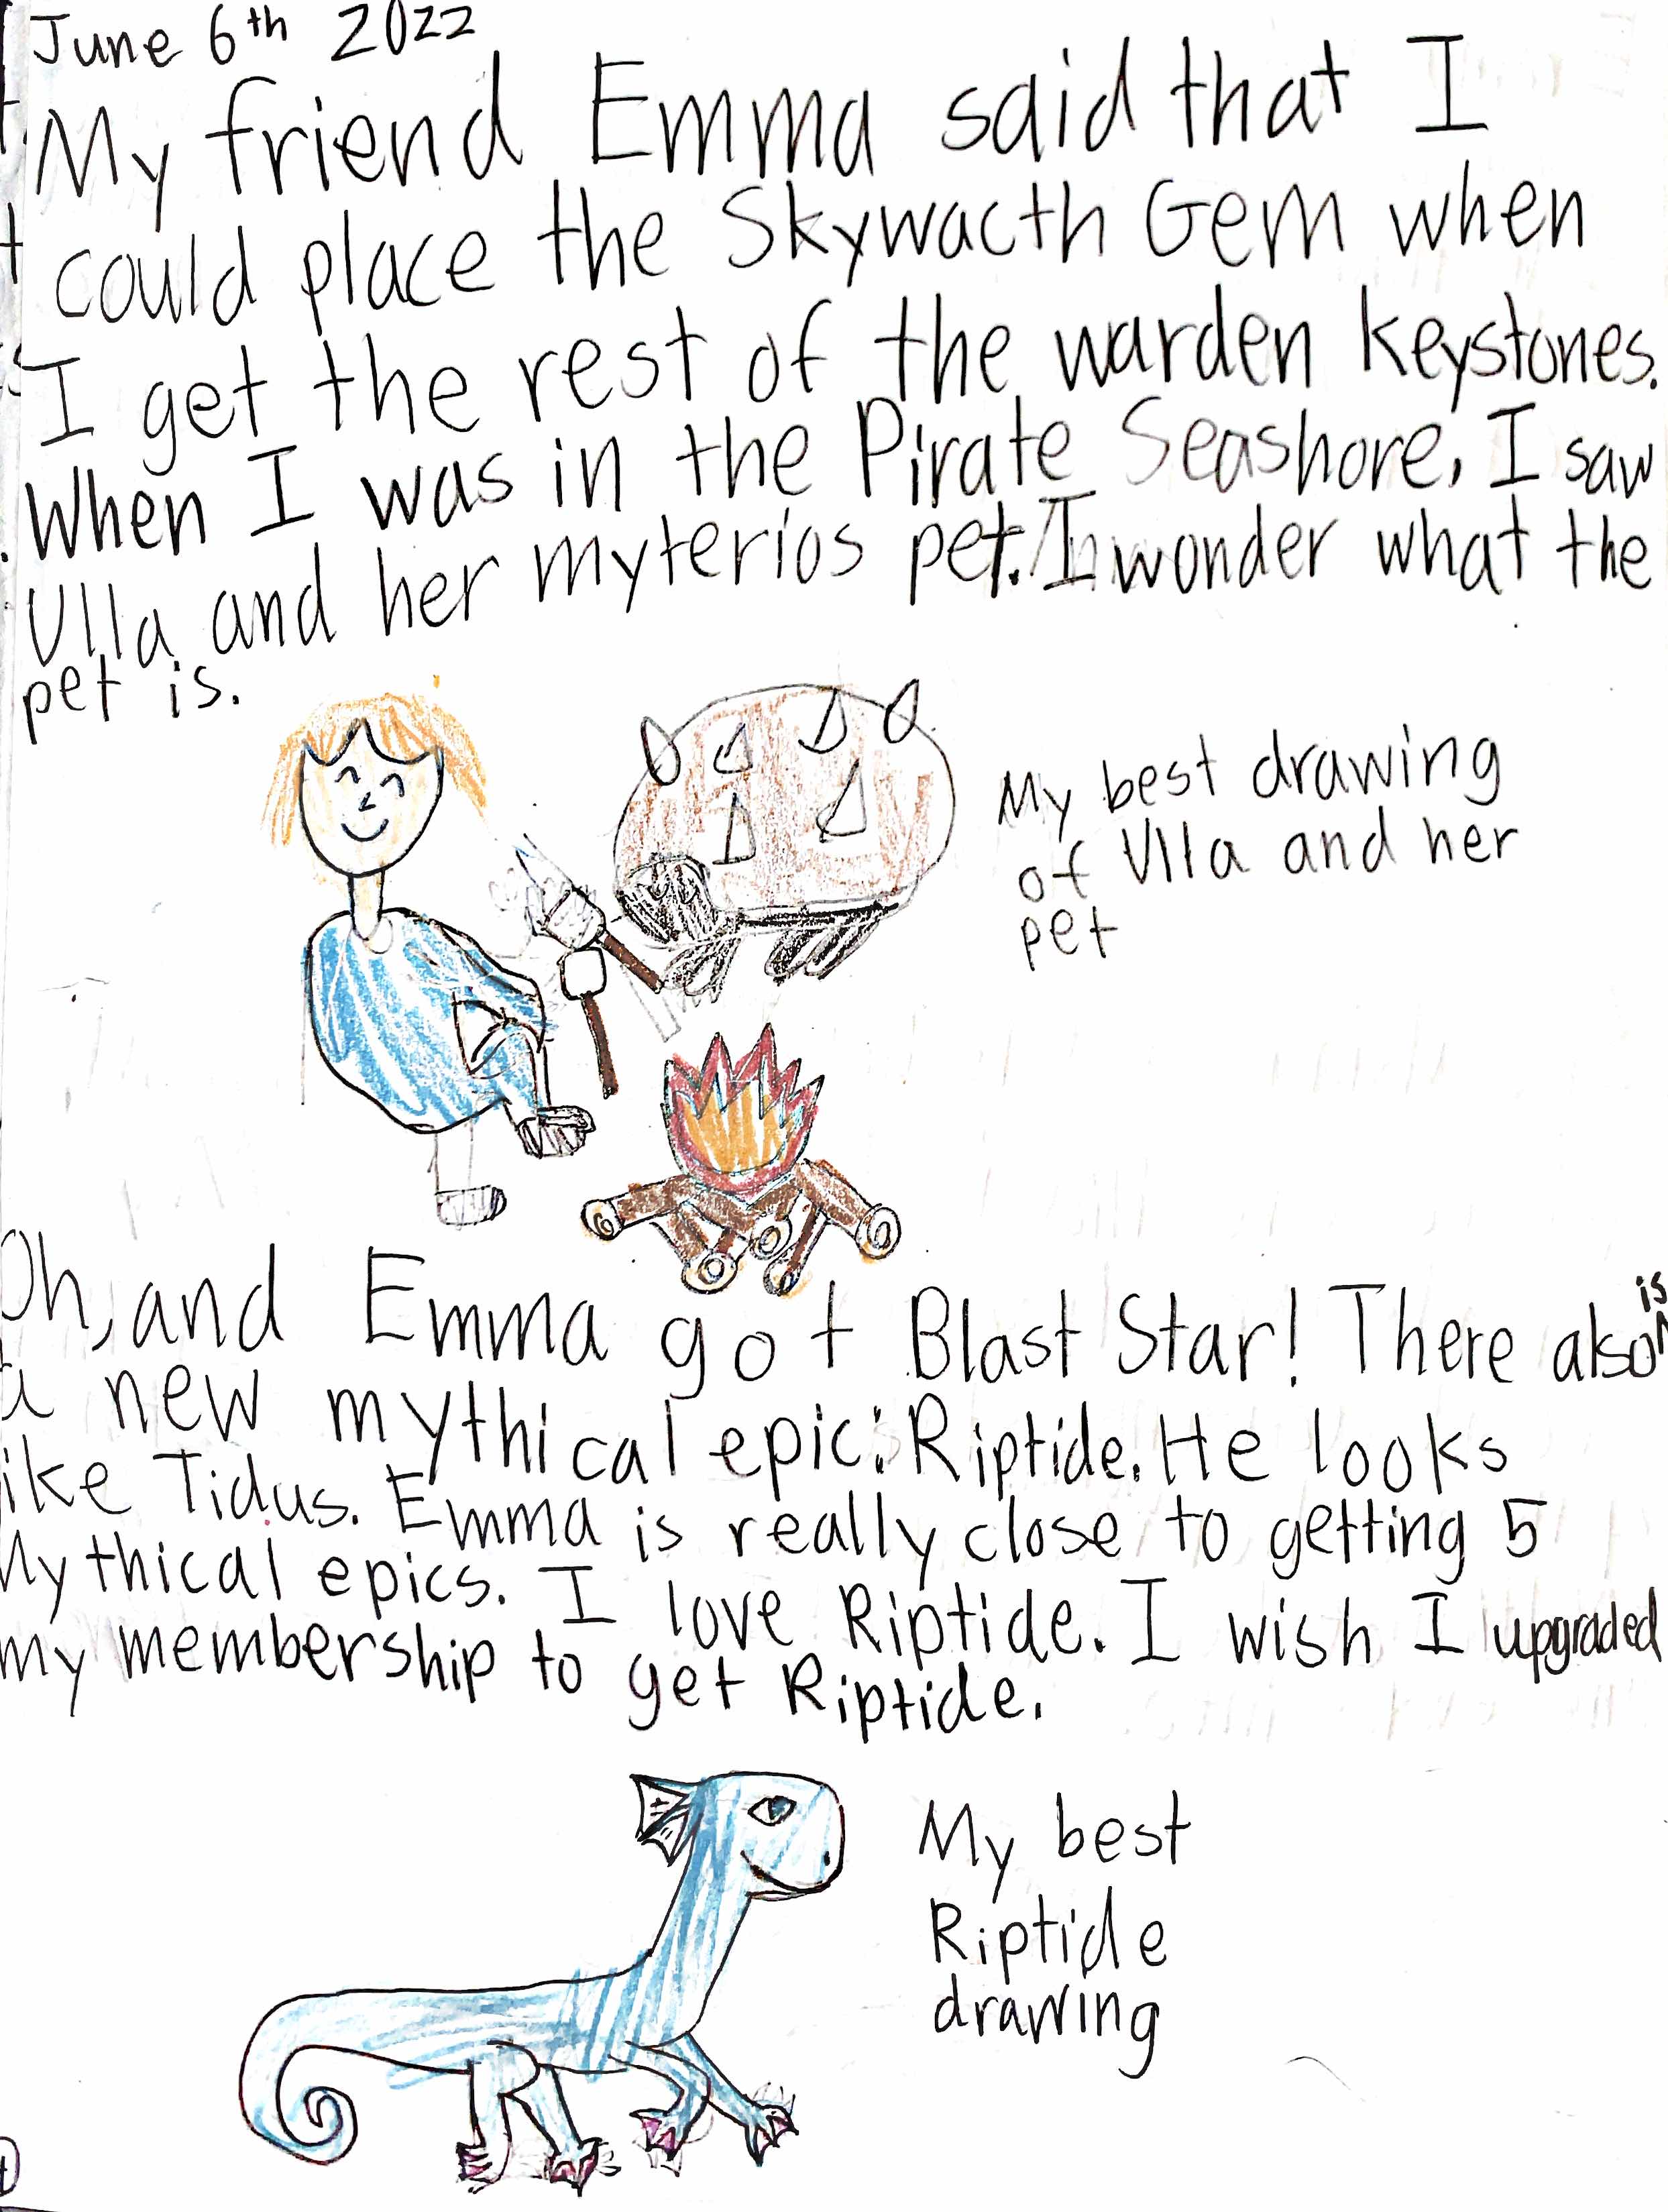 June 6th 2022
My friend Emma said that I
could place the Skywacth Gem when
I get the rest of the warden keystones.
When I was in the Pirate Seashore, I saw
Ulla and her myterios pet. I wonder what the
pet is.
My best drawing
of Ulla and her
pet
Oh, and Emma got Blast Star! There also is
a new mythical epic: Riptide. He looks
like Tidus. Emma is really close to getting 5
Mythical epics. I love Riptide. I wish I upgraded
my membership to get Riptide.
My best
Riptide
drawing